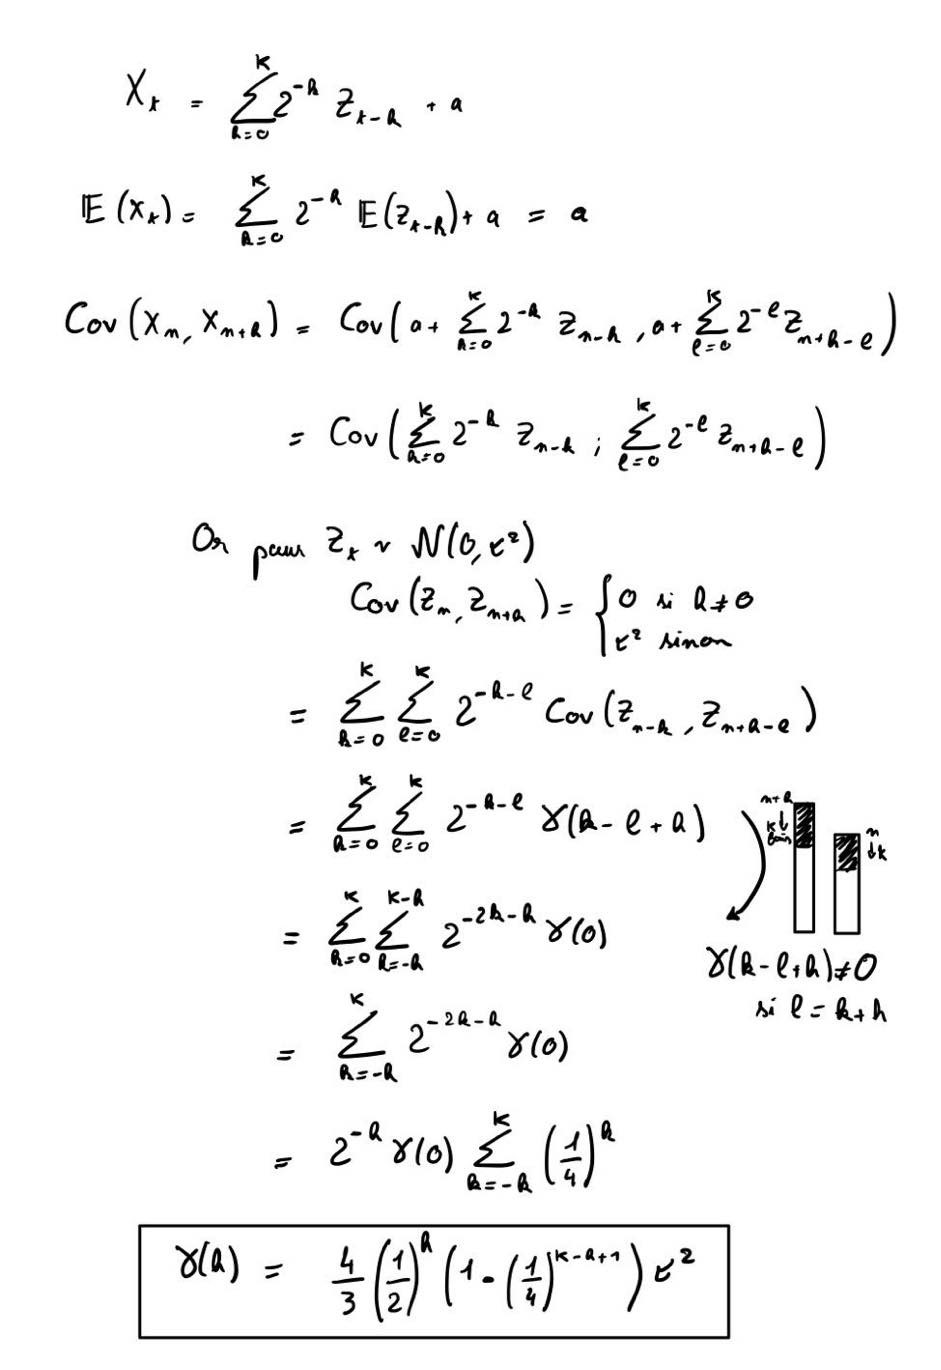 X_t = ∑_{k=0}^{K} 2^{-k} Z_{t-k} + a
𝔼(X_t) = ∑_{k=0}^{K} 2^{-k} 𝔼(Z_{t-k}) + a = a
Cov(X_n, X_{n+h}) = Cov(a + ∑_{k=0}^{K} 2^{-k} Z_{n-k}, a + ∑_{ℓ=0}^{K} 2^{-ℓ} Z_{n+h-ℓ})
= Cov(∑_{k=0}^{K} 2^{-k} Z_{n-k} ; ∑_{ℓ=0}^{K} 2^{-ℓ} Z_{n+h-ℓ})
Or pour Z_t ~ N(0, τ²)
Cov(Z_n, Z_{n+h}) = { 0 si h ≠ 0
τ² sinon
= ∑_{k=0}^{K} ∑_{ℓ=0}^{K} 2^{-k-ℓ} Cov(Z_{n-k}, Z_{n+h-ℓ})
= ∑_{k=0}^{K} ∑_{ℓ=0}^{K} 2^{-k-ℓ} γ(k - ℓ + h)
n+h
K ↓
n
↓ K
= ∑_{h=0}^{K} ∑_{k=-h}^{K-h} 2^{-2k-h} γ(0)
γ(k - ℓ + h) ≠ 0
si ℓ = k + h
= ∑_{k=-h}^{K} 2^{-2k-h} γ(0)
= 2^{-h} γ(0) ∑_{k=-h}^{K} (1/4)^k
γ(h) = 4/3 (1/2)^h (1 - (1/4)^{K-h+1}) τ²